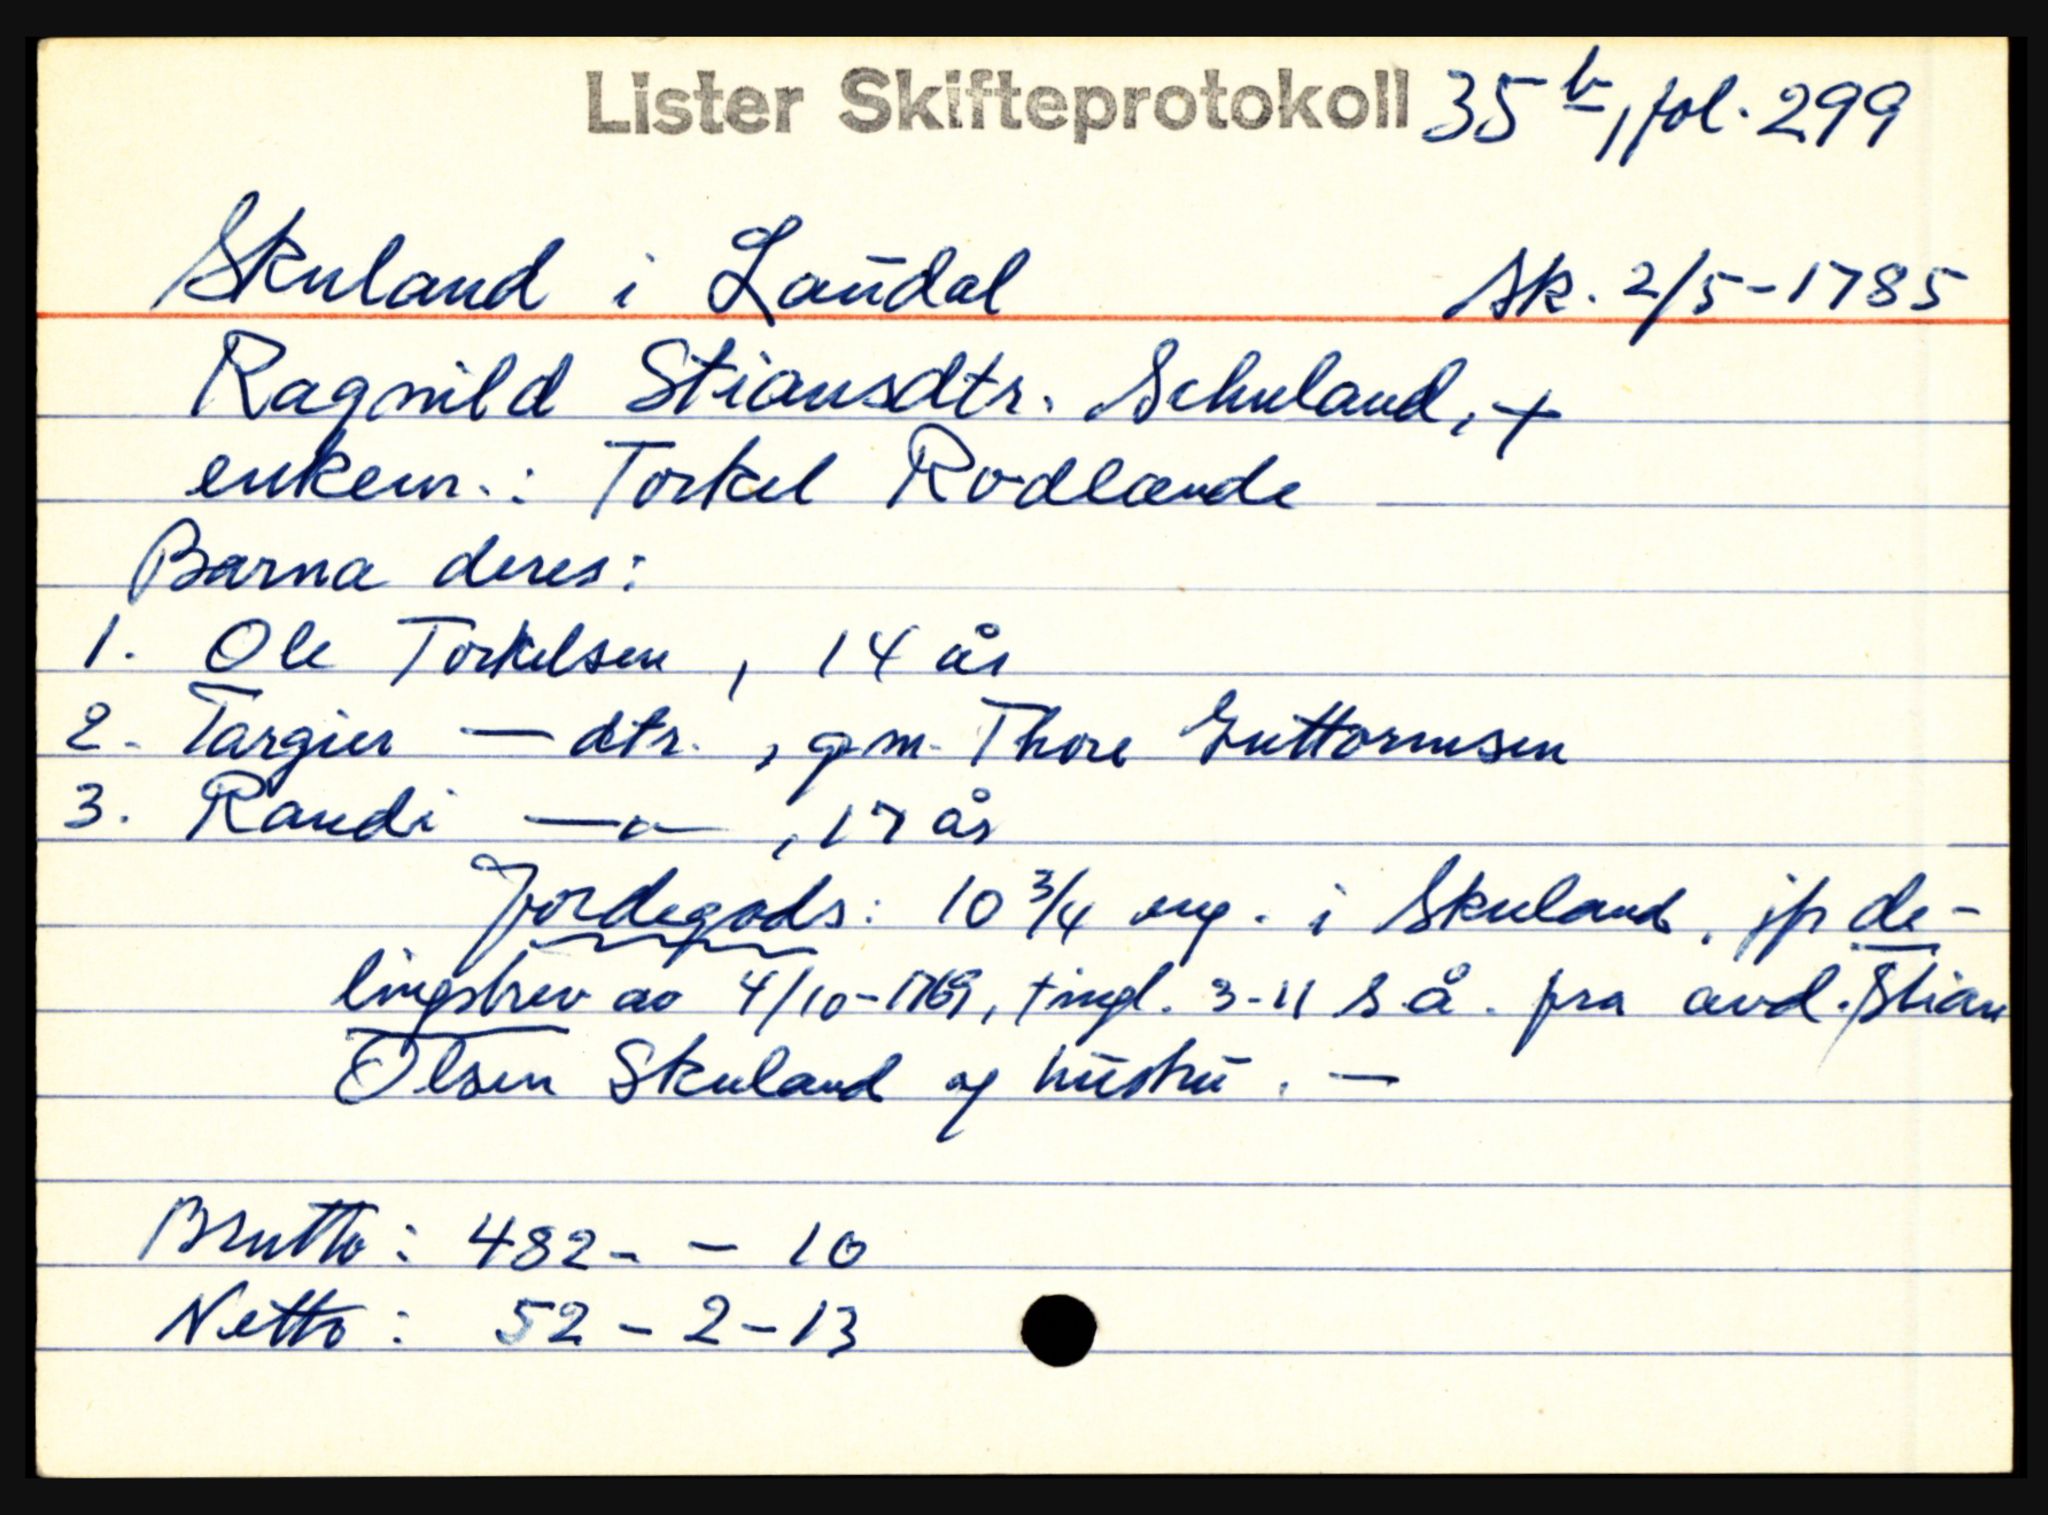 Lister Skifteprotokoll 35b, fol. 299
Skuland i Laudal Sk. 2/5-1785
Ragnild Stiansdtr. Schuland, +
enkem.: Torkel Rodlande
Barna deres:
1. Ole Torkelsen, 14 år
2. Targier — dtr., gm. Thore Guttormsen
3. Randi —"—, 17 år
Jordegods: 10 3/4 eng. i Skuland, jfr de-
lingsbrev av 4/10-1769, tingl. 3-11 s.å. fra avd. Stian
Olsen Skuland og hustru. —
Brutto: 482- - 10
Netto: 52 - 2 - 13